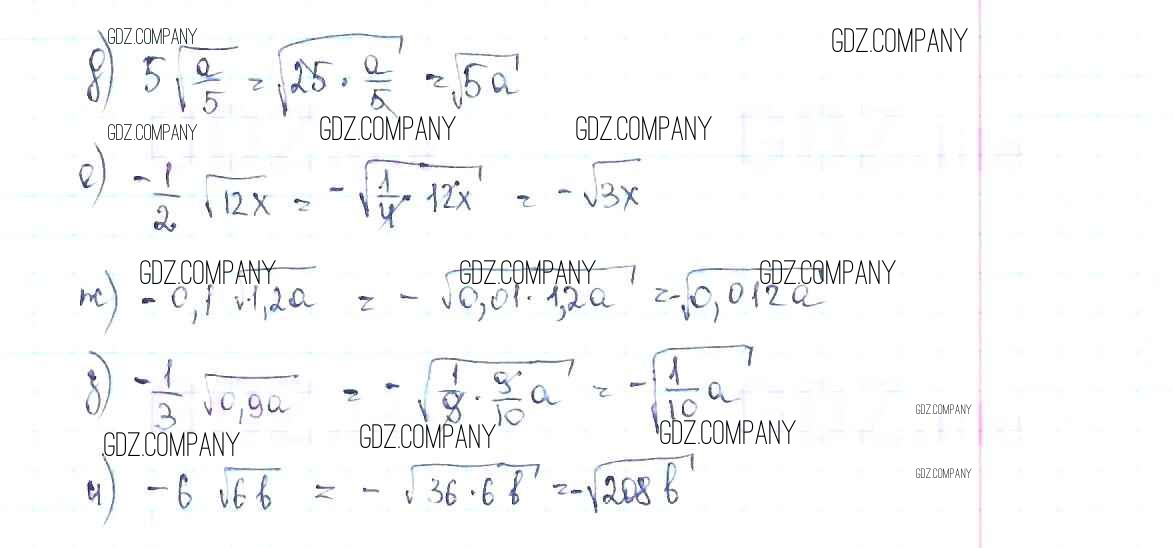 GDZ.COMPANY GDZ.COMPANY
д) 5√(a/5) = √(25 · a/5) = √(5a)
GDZ.COMPANY GDZ.COMPANY GDZ.COMPANY
е) -1/2 √(12x) = -√(1/4 · 12x) = -√(3x)
GDZ.COMPANY GDZ.COMPANY GDZ.COMPANY
ж) -0,1 √(1,2a) = -√(0,01 · 1,2a) = -√(0,012a)
з) -1/3 √(0,9a) = -√(1/9 · 9/10 a) = -√(1/10 a)
GDZ.COMPANY
GDZ.COMPANY GDZ.COMPANY GDZ.COMPANY
и) -6 √(6b) = -√(36 · 6b) = -√(208b)
GDZ.COMPANY